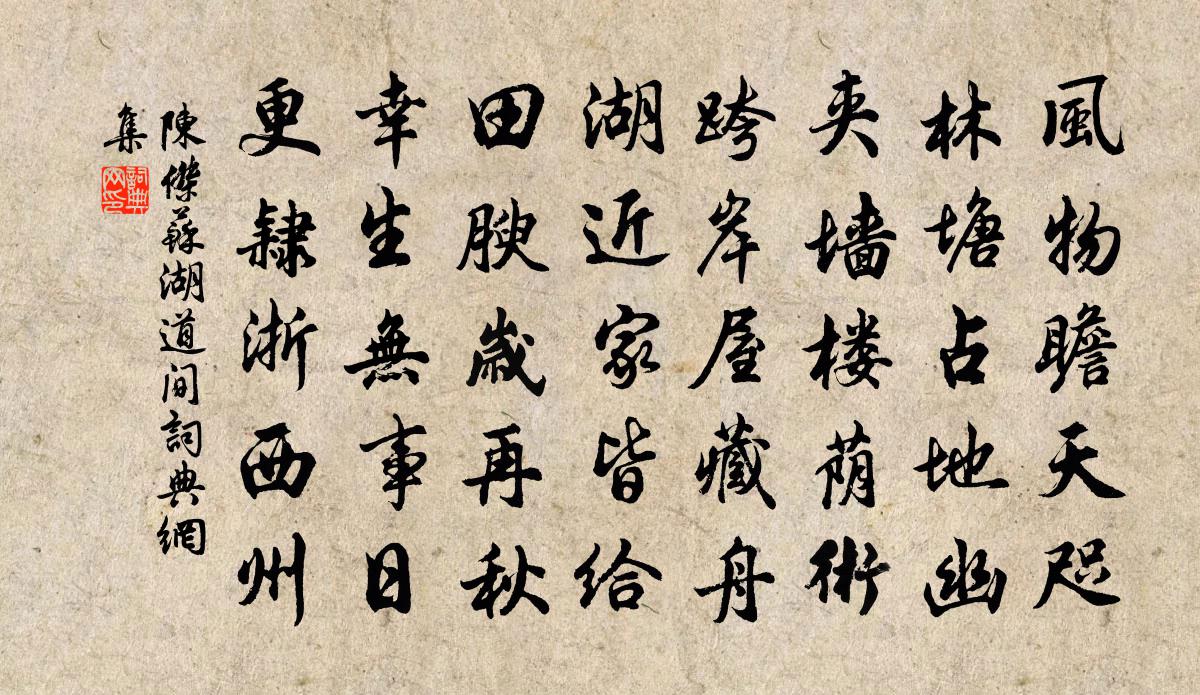 風物瞻天咫
林塘占地幽
夹墙楼荫術
跨岸屋藏舟
湖近家皆给
田腴歲再秋
幸生無事日
更隸浙西州
陳傑蘇湖道间詞典網
集
詞典
网印